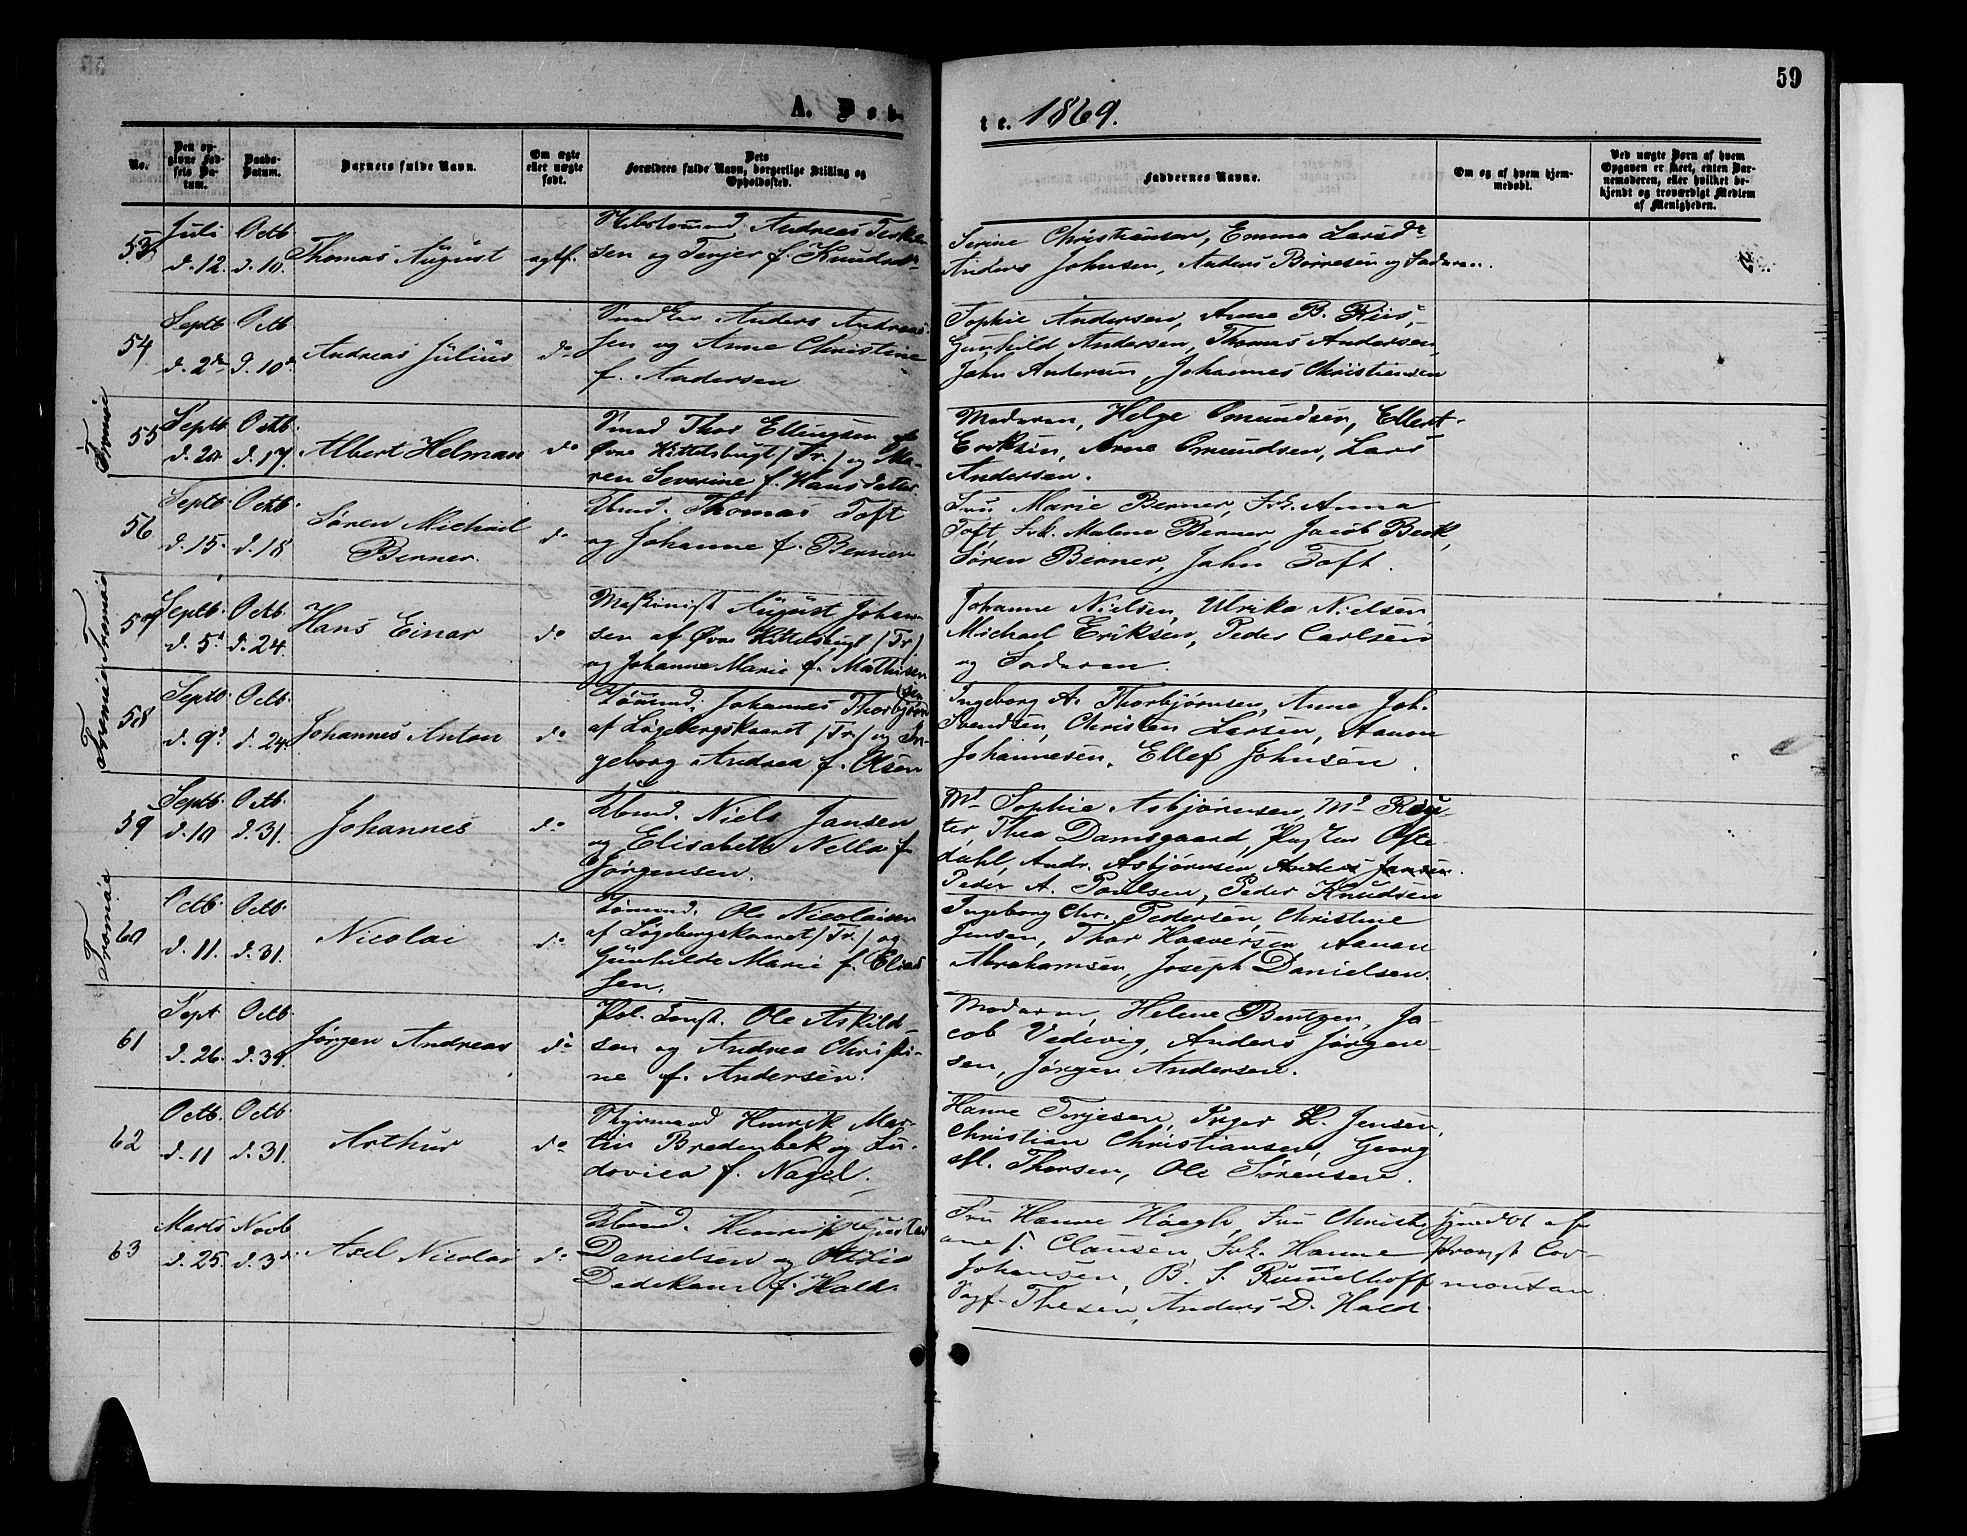 59
A. Døb-
te. 1869.
No.
Den op-
givne Fød-
sels Da-
tum.
Daabs-
Datum.
Barnets fulde Navn.
Om ægte
eller uægte
født.
Dets
Forældres fulde Navn, borgerlige Stilling og
Opholdssted.
Faddernes Navne.
Om og af hvem hjem-
medøbt.
Ved uægte Børn af hvem
Opgaven er skeet, enten Bar-
nemoderen, eller hvilket be-
kjendt og troværdigt Medlem
af Menigheden.
53
Juli
d. 12.
Octb
d. 10.
Thomas August
ægtf.
Andreas Terkel-
sen og Terjer f. Knudsd
Serine Christiansen, Emma Larsdr
Anders Johnsen, Anders Børresen og Faderen.
54
Septb
d. 2den
Octb
d. 10d
Andreas Julius
do
Anders Andreas-
sen og Anne Christine
f. Andersen
Sophie Andersen, Anne B. Riis,
Gunhild Andersen, Thomas Andersen,
John Andersen, Johannes Christiansen
Tromø
55
Septb
d. 24
Octb.
d. 17.
Albert Helman
do
Smed Thor Ellingsen af
Øvre Kittelsbugt (Tr.) og Ma-
ren Severine f. Hansdatter
Moderen, Helge Omundsen, Ellert
Eriksen, Arne Omundsen, Lars
Andersen.
56
Septb.
d. 15.
Octb.
d. 18.
Søren Michael
Berner.
do
Kbmd. Thomas Toft
og Johanne f. Berner
Fru Marie Berner, Frk. Anna
Toft, Frk. Malene Berner, Jacob Beck,
Søren Berner, John Toft.
Tromøe
57
Septb.
d. 5d
Octb
d. 24.
Hans Einar
do
Maskinist August Johan-
sen af Øvre Kittelsbugt (Tr.)
og Johanne Marie f. Mathisen
Johanne Nielsen, Ulrika Nielsen
Michael Eriksen, Peder Carlsen
og Faderen.
Tromøe
58
Septb.
d. 9d
Octb.
d. 24
Johannes Anton
do
Tømmd. Johannes Thorbjørn
(sen
af Løgebergskaaret (Tr.) og In-
geborg Andrea f. Olsen
Ingeborg A. Thorbjørnsen, Anne Joh.
Svendsen, Christen Larsen, Aanon
Johannesen, Ellef Johnsen.
59
Septb.
d. 10
Octb.
d. 31.
Johannes
do
Kbmd. Niels Jansen
og Elisabeth Nella f.
Jørgensen.
Md Sophie Asbjørnsen, Md Reu-
ter, Thea Damsgaard, Pastor Ofte-
dahl, Andr. Asbjørnsen, Anders Jansen.
Peder A. Poulsen, Peder Knudsen
Tromøe
60
Octb.
d. 11.
Octb.
d. 31.
Nicolai
do
Tømmd. Ole Nicolaisen
af Løgebergskaaret (Tr.) og
Gunhilde Marie f. Elias
sen.
Ingeborg Chr. Pedersen, Christine
Jensen, Thor Haaversen, Aanon
Abrahamsen, Joseph Danielsen.
61
Sept
d. 26.
Octb.
d. 31.
Jørgen Andreas
do
Pol. Const. Ole Askild-
sen og Andrea Christi-
ne f. Andersen.
Moderen, Helene Bentzen, Ja-
cob Vedevig, Anders Jørgen-
sen, Jørgen Andersen.
62
Octb.
d. 11
Octb
d. 31.
Arthur
do
Styrmand Henrik Mar-
tin Bredenbek og Lu-
dovica f. Nagel.
Hanne Terjesen, Inger L. Jensen,
Christian Christiansen, Georg
M. Thorsen, Ole Sørensen.
63
Marts
d. 25.
Novb
d. 3d.
Axel Nicolai
do
Kbmd. Henrik Gustav
Danielsen og Otilie
Dedekam f. Hald.
Fru Hanne Høegh, Fru Christi-
ane F. Clausen, Frk. Hanne
Johansen, B. S. Rummelhoff
Thesen, Anders D. Hald.
Hjmdbt af
Provst Cor-
montan.